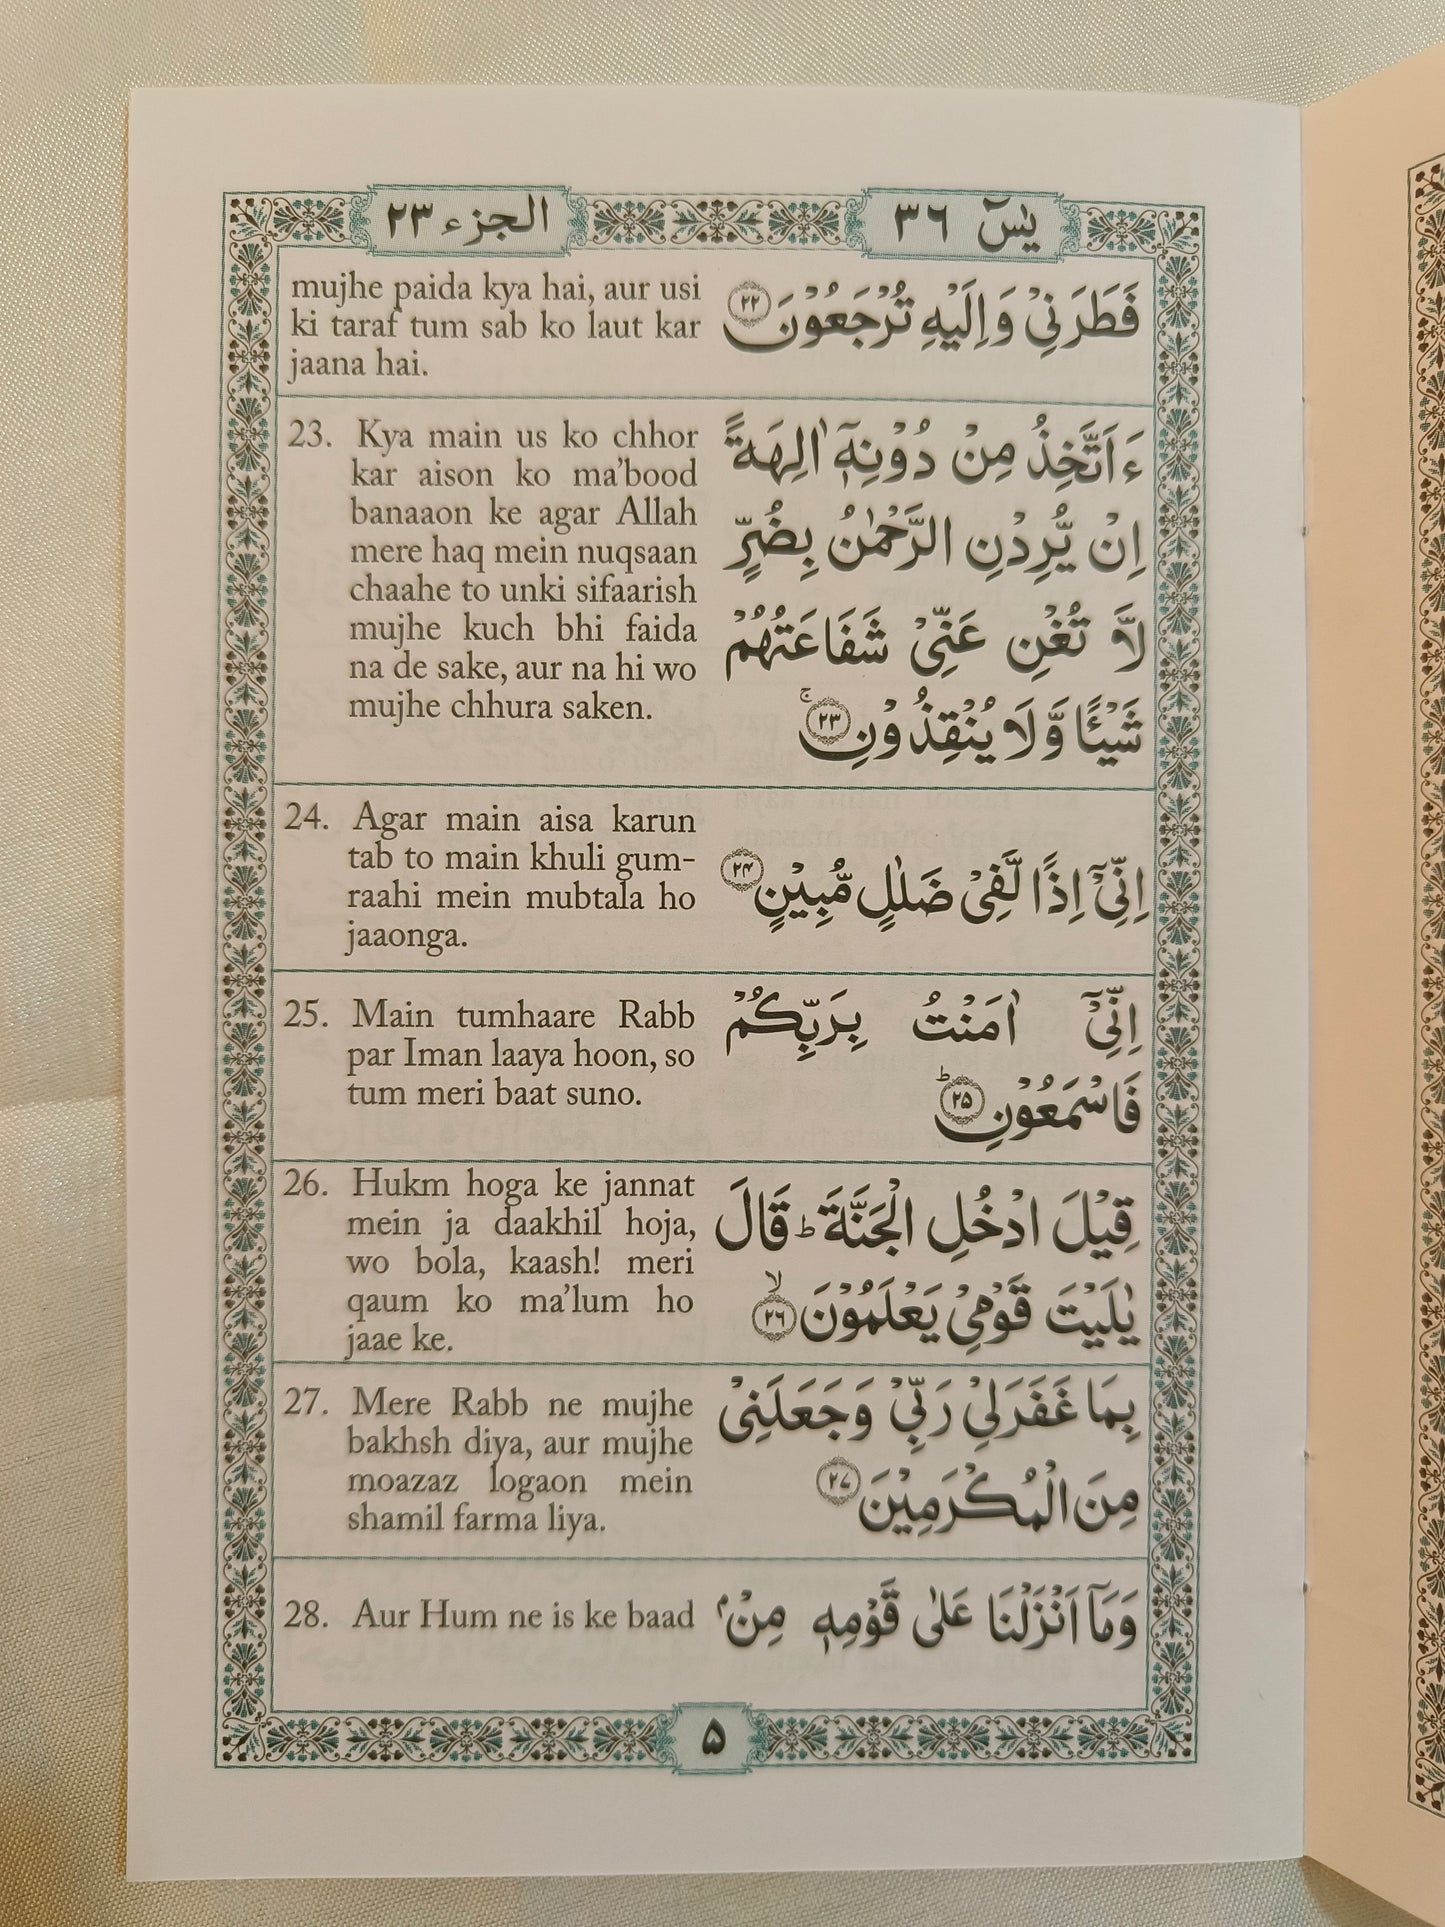 الجزء ٢٣
يٰسٓ ٣٦
mujhe paida kya hai, aur usi
ki taraf tum sab ko laut kar
jaana hai.
فَطَرَنِىْ وَاِلَيْهِ تُرْجَعُوْنَ ٢٢
23. Kya main us ko chhor
kar aison ko ma’bood
banaaon ke agar Allah
mere haq mein nuqsaan
chaahe to unki sifaarish
mujhe kuch bhi faida
na de sake, aur na hi wo
mujhe chhura saken.
ءَاَتَّخِذُ مِنْ دُوْنِهٖۤ اٰلِهَةً
اِنْ يُّرِدْنِ الرَّحْمٰنُ بِضُرٍّ
لَّا تُغْنِ عَنِّىْ شَفَاعَتُهُمْ
شَيْـًٔا وَّلَا يُنْقِذُوْنِ ۚ ٢٣
24. Agar main aisa karun
tab to main khuli gum-
raahi mein mubtala ho
jaaonga.
اِنِّىْۤ اِذًا لَّفِىْ ضَلٰلٍ مُّبِيْنٍ ٢۴
25. Main tumhaare Rabb
par Iman laaya hoon, so
tum meri baat suno.
اِنِّىْۤ اٰمَنْتُ بِرَبِّكُمْ
فَاسْمَعُوْنِ ؕ ٢۵
26. Hukm hoga ke jannat
mein ja daakhil hoja,
wo bola, kaash! meri
qaum ko ma’lum ho
jaae ke.
قِيْلَ ادْخُلِ الْجَنَّةَ ؕ قَالَ
يٰلَيْتَ قَوْمِىْ يَعْلَمُوْنَ ۙ ٢٦
27. Mere Rabb ne mujhe
bakhsh diya, aur mujhe
moazaz logaon mein
shamil farma liya.
بِمَا غَفَرَلِىْ رَبِّىْ وَجَعَلَنِىْ
مِنَ الْمُكْرَمِيْنَ ٢٧
28. Aur Hum ne is ke baad
وَمَاۤ اَنْزَلْنَا عَلٰى قَوْمِهٖ مِنْۢ
۵